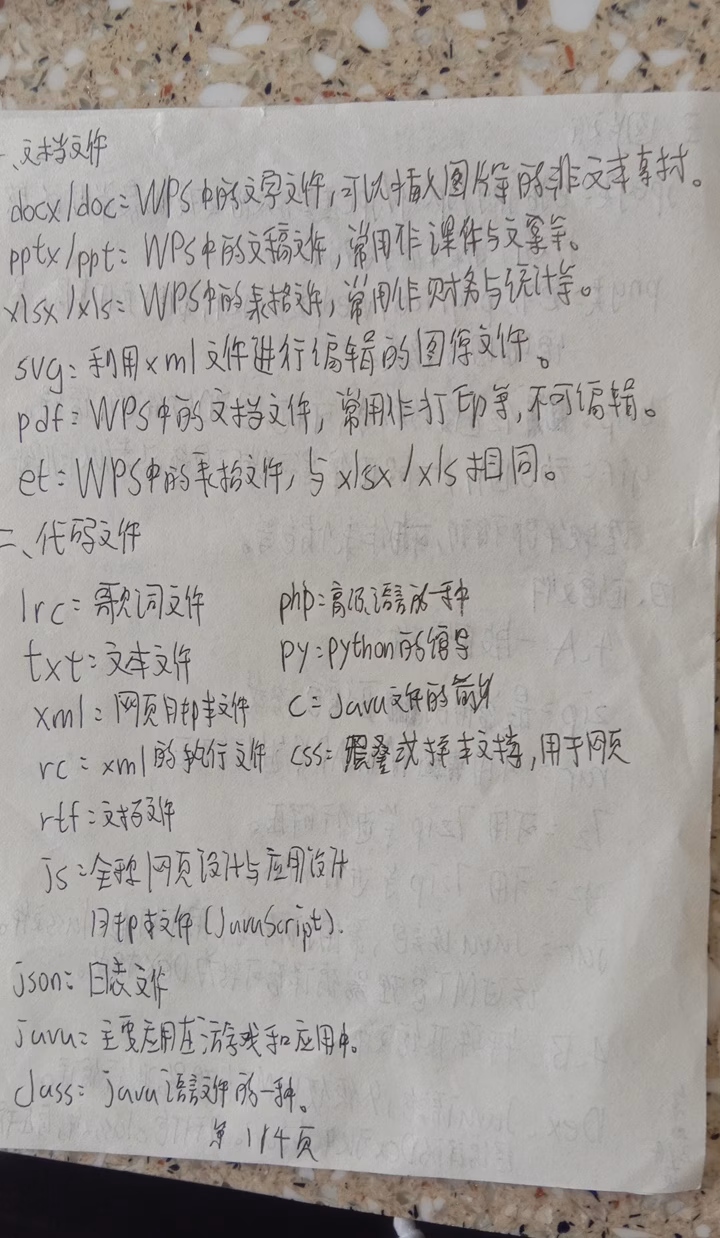 一、文档文件
docx/doc：WPS中的文字文件，可以插入图片等的非文本素材。
pptx/ppt：WPS中的文稿文件，常用作课件与文案等。
xlsx/xls：WPS中的表格文件，常用作财务与统计等。
svg：利用xml文件进行编辑的图像文件。
pdf：WPS中的文档文件，常用作打印等，不可编辑。
et：WPS中的表格文件，与xlsx/xls相同。
二、代码文件
lrc：歌词文件 php：高级语言的一种
txt：文本文件 py：python的编号
xml：网页脚本文件 c：java文件的前身
rc：xml的执行文件 css：层叠式样本文档，用于网页
rtf：文档文件
js：全称网页设计与应用设计
脚本文件(JavaScript).
json：日志文件
java：主要应用在游戏和应用中。
class：java语言文件的一种。
第1/4页